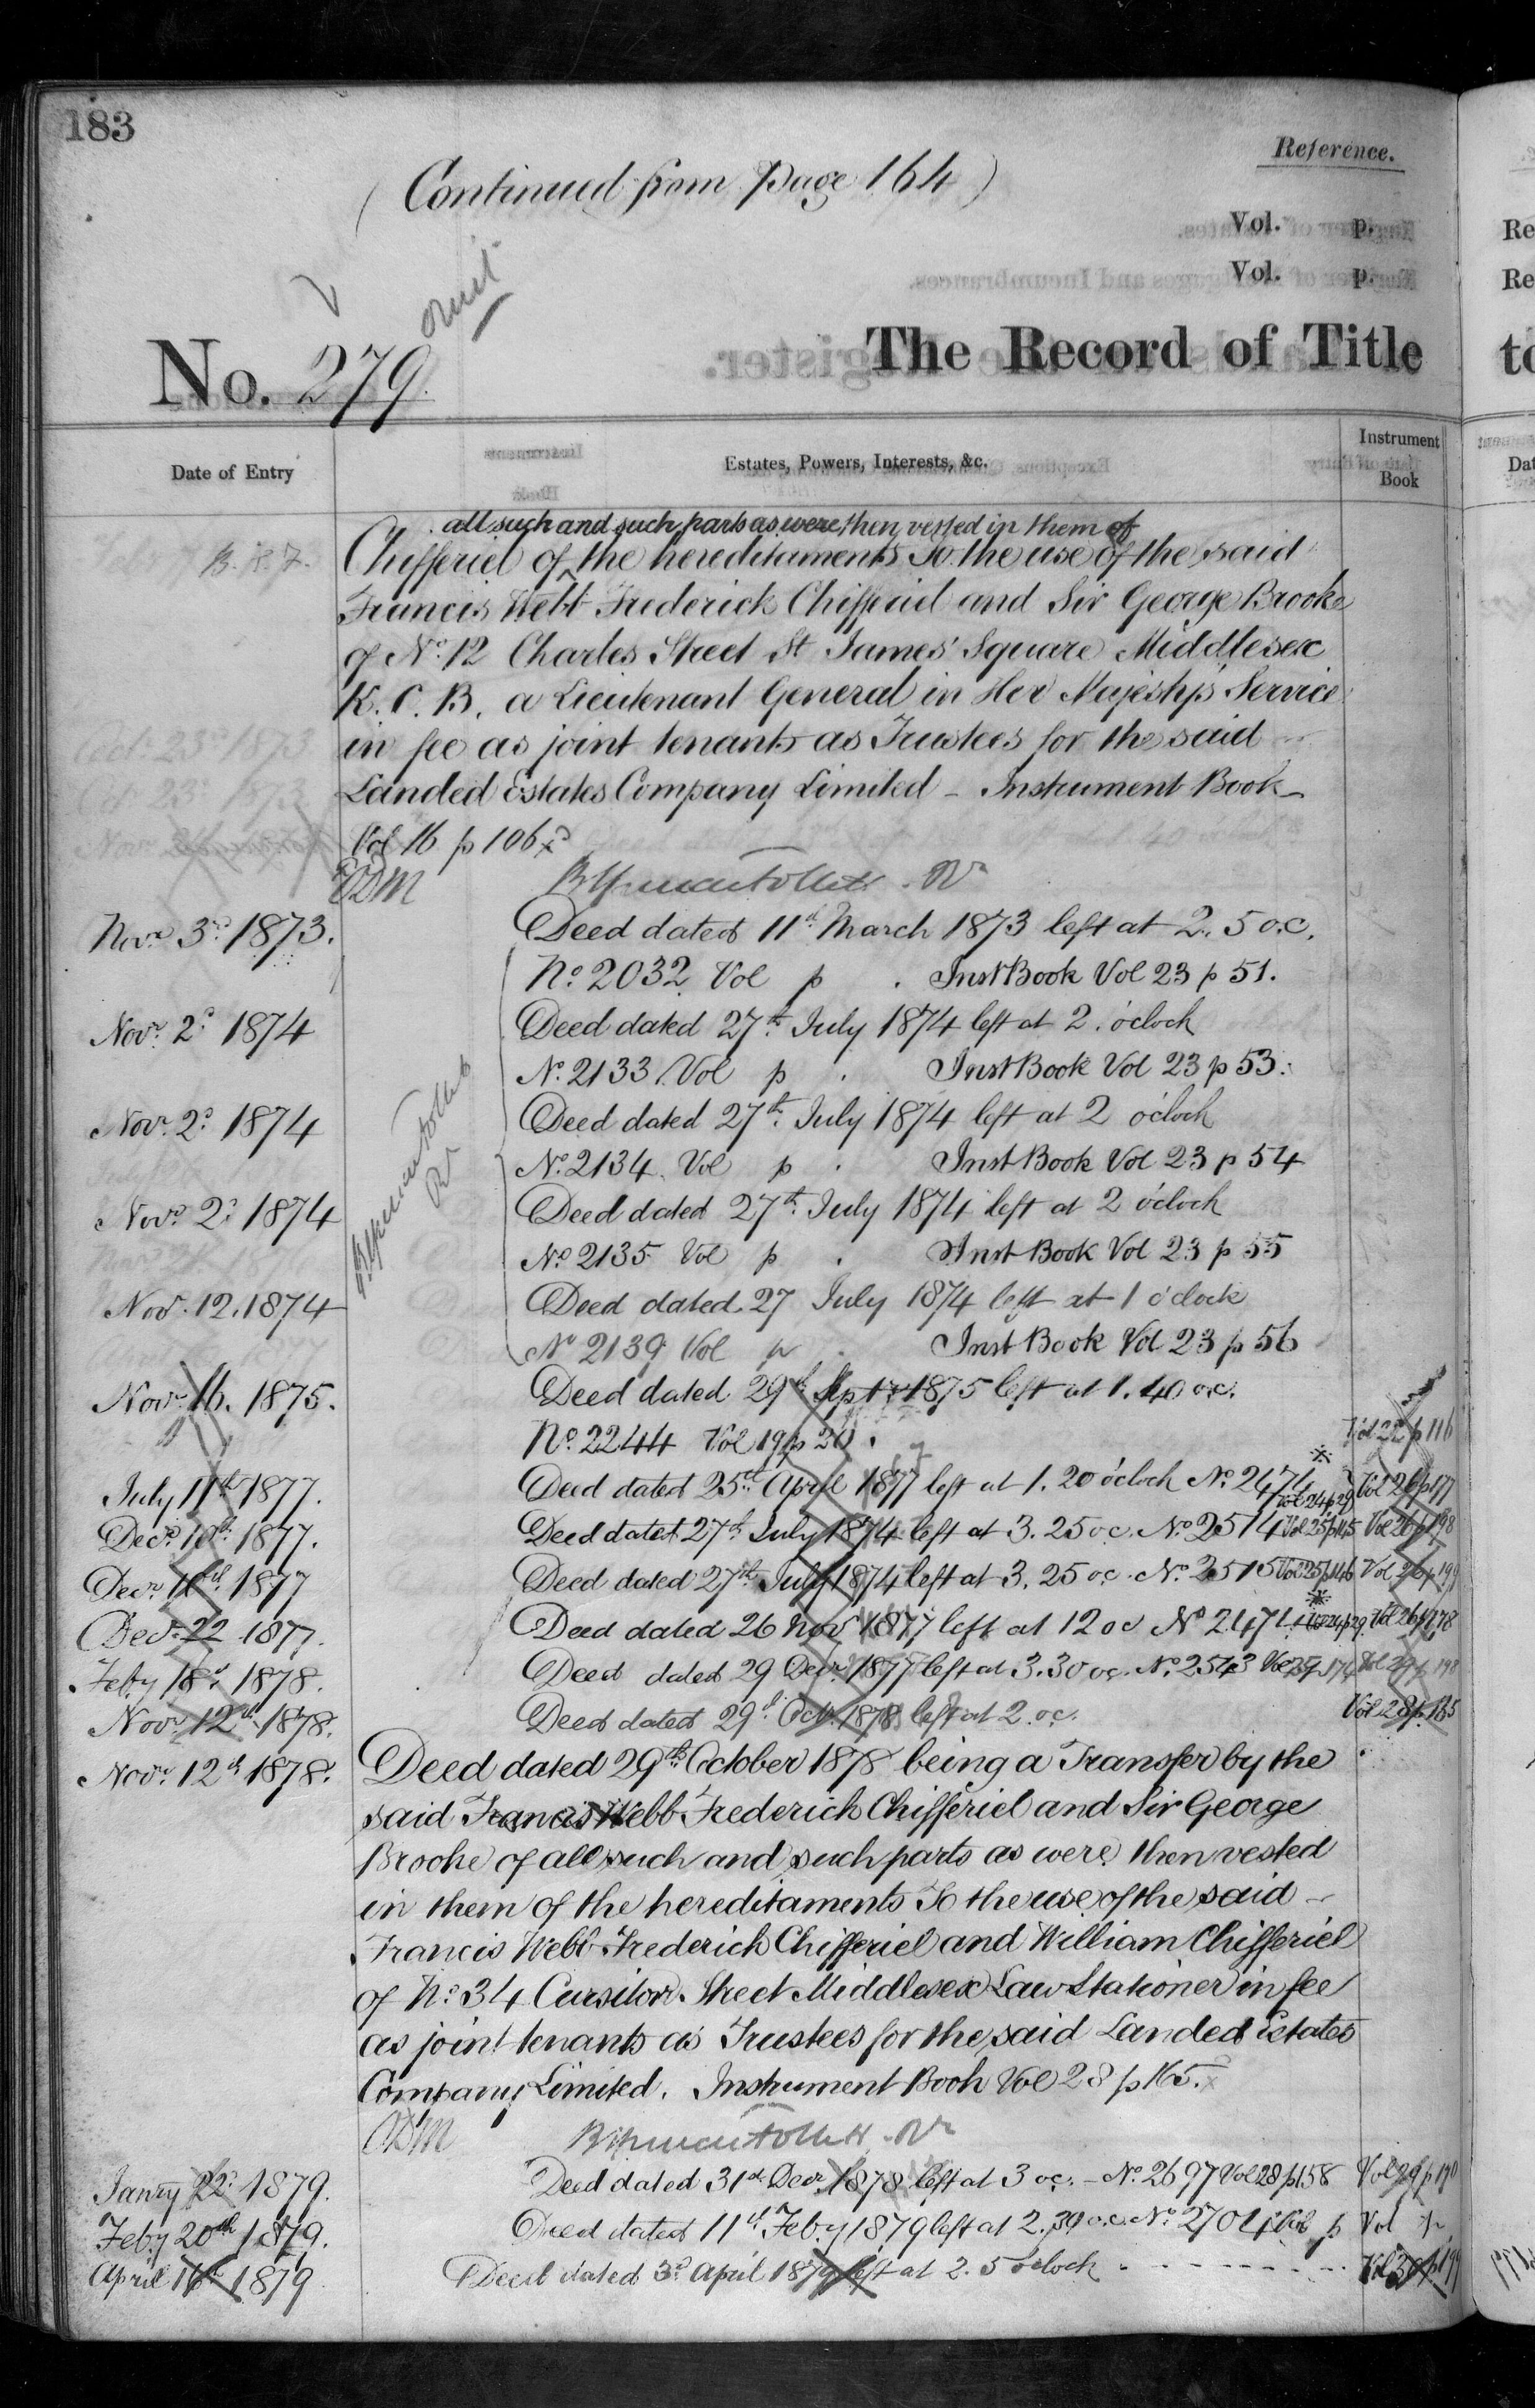 183
Reference.
(Continued from Page 164)
Vol. p.
Vol. p.
omit
No. 279.
The Record of Title
Date of Entry
Estates, Powers, Interests, &c.
Instrument Book
all such and such parts as were then vested in them of
Chifferiel of the hereditaments To the use of the said
Francis Webb Frederick Chifferiel and Sir George Brooke
of No. 12 Charles Street St James' Square Middlesex
K.C.B. a Lieutenant General in Her Majesty's Service
in fee as joint tenants as Trustees for the said
Landed Estates Company Limited – Instrument Book –
Vol 16 p 106
Novr. 3d. 1873. Deed dated 11th March 1873 left at 2.5 o.c.
No. 2032 Vol p . Inst Book Vol 23 p 51.
Novr. 2d 1874 Deed dated 27th. July 1874 left at 2. o'clock
No. 2133. Vol p . Inst Book Vol 23 p 53.
Novr. 2d 1874 Deed dated 27th. July 1874 left at 2 o'clock
No. 2134. Vol p . Inst Book Vol 23 p 54
Novr. 2d 1874 Deed dated 27th. July 1874 left at 2 o'clock
No. 2135 Vol p . Inst Book Vol 23 p 55
Novr. 12. 1874 Deed dated 27 July 1874 left at 1 o'clock
No 2139 Vol p . Inst Book Vol 23 p 56
Novr. 16. 1875. Deed dated 29th Sept 1875 left at 1.40 o.c.
No. 2244 Vol 19 p 20. Vol 22 p 116
July 11th 1877. Deed dated 25th April 1877 left at 1.20 o'clock No. 2474 Vol 24 p 29 Vol 26 p 177
Decr. 10th. 1877. Deed dated 27th July 1874 left at 3.25 o.c. No. 2514 Vol 25 p 145 Vol 26 p 198
Decr. 10th. 1877 Deed dated 27th July 1874 left at 3.25 o.c. No. 2515 Vol 25 p 146 Vol 26 p 199
Decr. 22 1877. Deed dated 26 Novr 1877 left at 12 oc No 2474 Vol 24 p 29 Vol 26 p 178
Feby 18th. 1878. Deed dated 29 Decr. 1877 left at 3.30 oc. No. 2543 Vol 25 p 174 Vol 27 p 198
Novr. 12th 1878. Deed dated 29th Octr. 1878 left at 2 o.c. Vol 28 p 165
Novr. 12th 1878. Deed dated 29th. October 1878 being a Transfer by the
said Francis Webb Frederick Chifferiel and Sir George
Brooke of all such and such parts as were then vested
in them of the hereditaments To the use of the said –
Francis Webb Frederick Chifferiel and William Chifferiel
of No. 34 Cursitor Street Middlesex Law Stationer in fee
as joint tenants as Trustees for the said Landed Estates
Company Limited. Instrument Book Vol 28 p 165.
Janry 22d. 1879. Deed dated 31st Decr. 1878 left at 3 oc. – No. 2697 Vol 28 p 158 Vol 29 p 190
Feby 20th 1879. Deed dated 11th Feby 1879 left at 2.30 o.c. No. 2704 Vol p Vol p
April 16th 1879 Deed dated 3d April 1879 left at 2.5 o'clock Vol 30 p 199